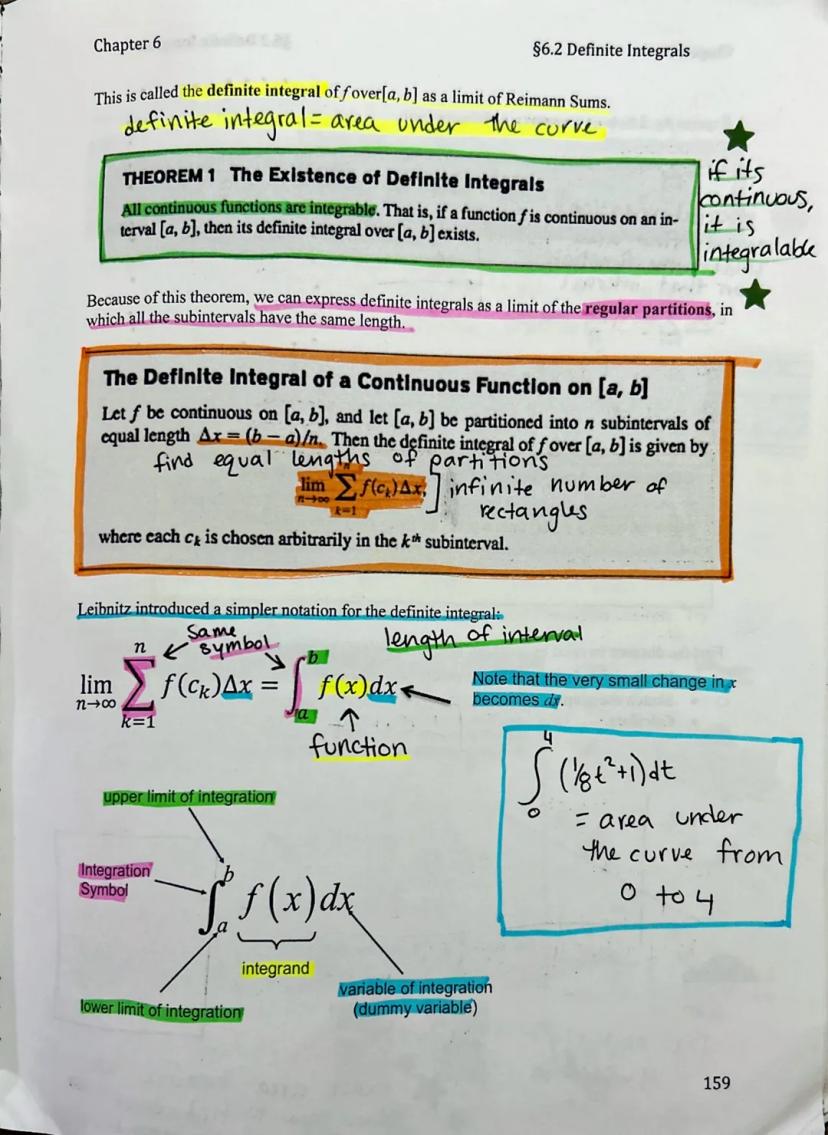 Chapter 6
§6.2 Definite Integrals
This is called the definite integral of f over[a, b] as a limit of Reimann Sums.
definite integral = area under the curve
THEOREM 1 The Existence of Definite Integrals
All continuous functions are integrable. That is, if a function f is continuous on an in-
terval [a, b], then its definite integral over [a, b] exists.
if its
continuous,
it is
integralable
Because of this theorem, we can express definite integrals as a limit of the regular partitions, in
which all the subintervals have the same length.
The Definite Integral of a Continuous Function on [a, b]
Let f be continuous on [a, b], and let [a, b] be partitioned into n subintervals of
equal length Δx = (b − a)/n. Then the definite integral of f over [a, b] is given by
find equal lengths of partitions
lim n→∞ n ∑ k=1 f(cₖ)Δx, ] infinite number of
rectangles
where each cₖ is chosen arbitrarily in the kᵗʰ subinterval.
Leibnitz introduced a simpler notation for the definite integral:
same
symbol
length of interval
lim n→∞ n ∑ k=1 f(cₖ)Δx = ∫ b a f(x)dx
Note that the very small change in x
becomes dx.
function
4 ∫ 0 (1/8t²+1)dt
= area under
the curve from
0 to 4
upper limit of integration
Integration
Symbol
∫ b a f(x)dx
integrand
lower limit of integration
variable of integration
(dummy variable)
159